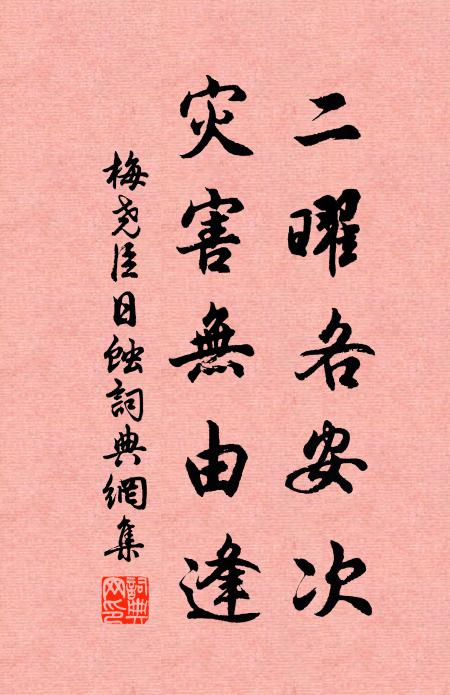 二曜各安次
灾害無由逢
梅尧臣日蝕詞典網集
詞典网印